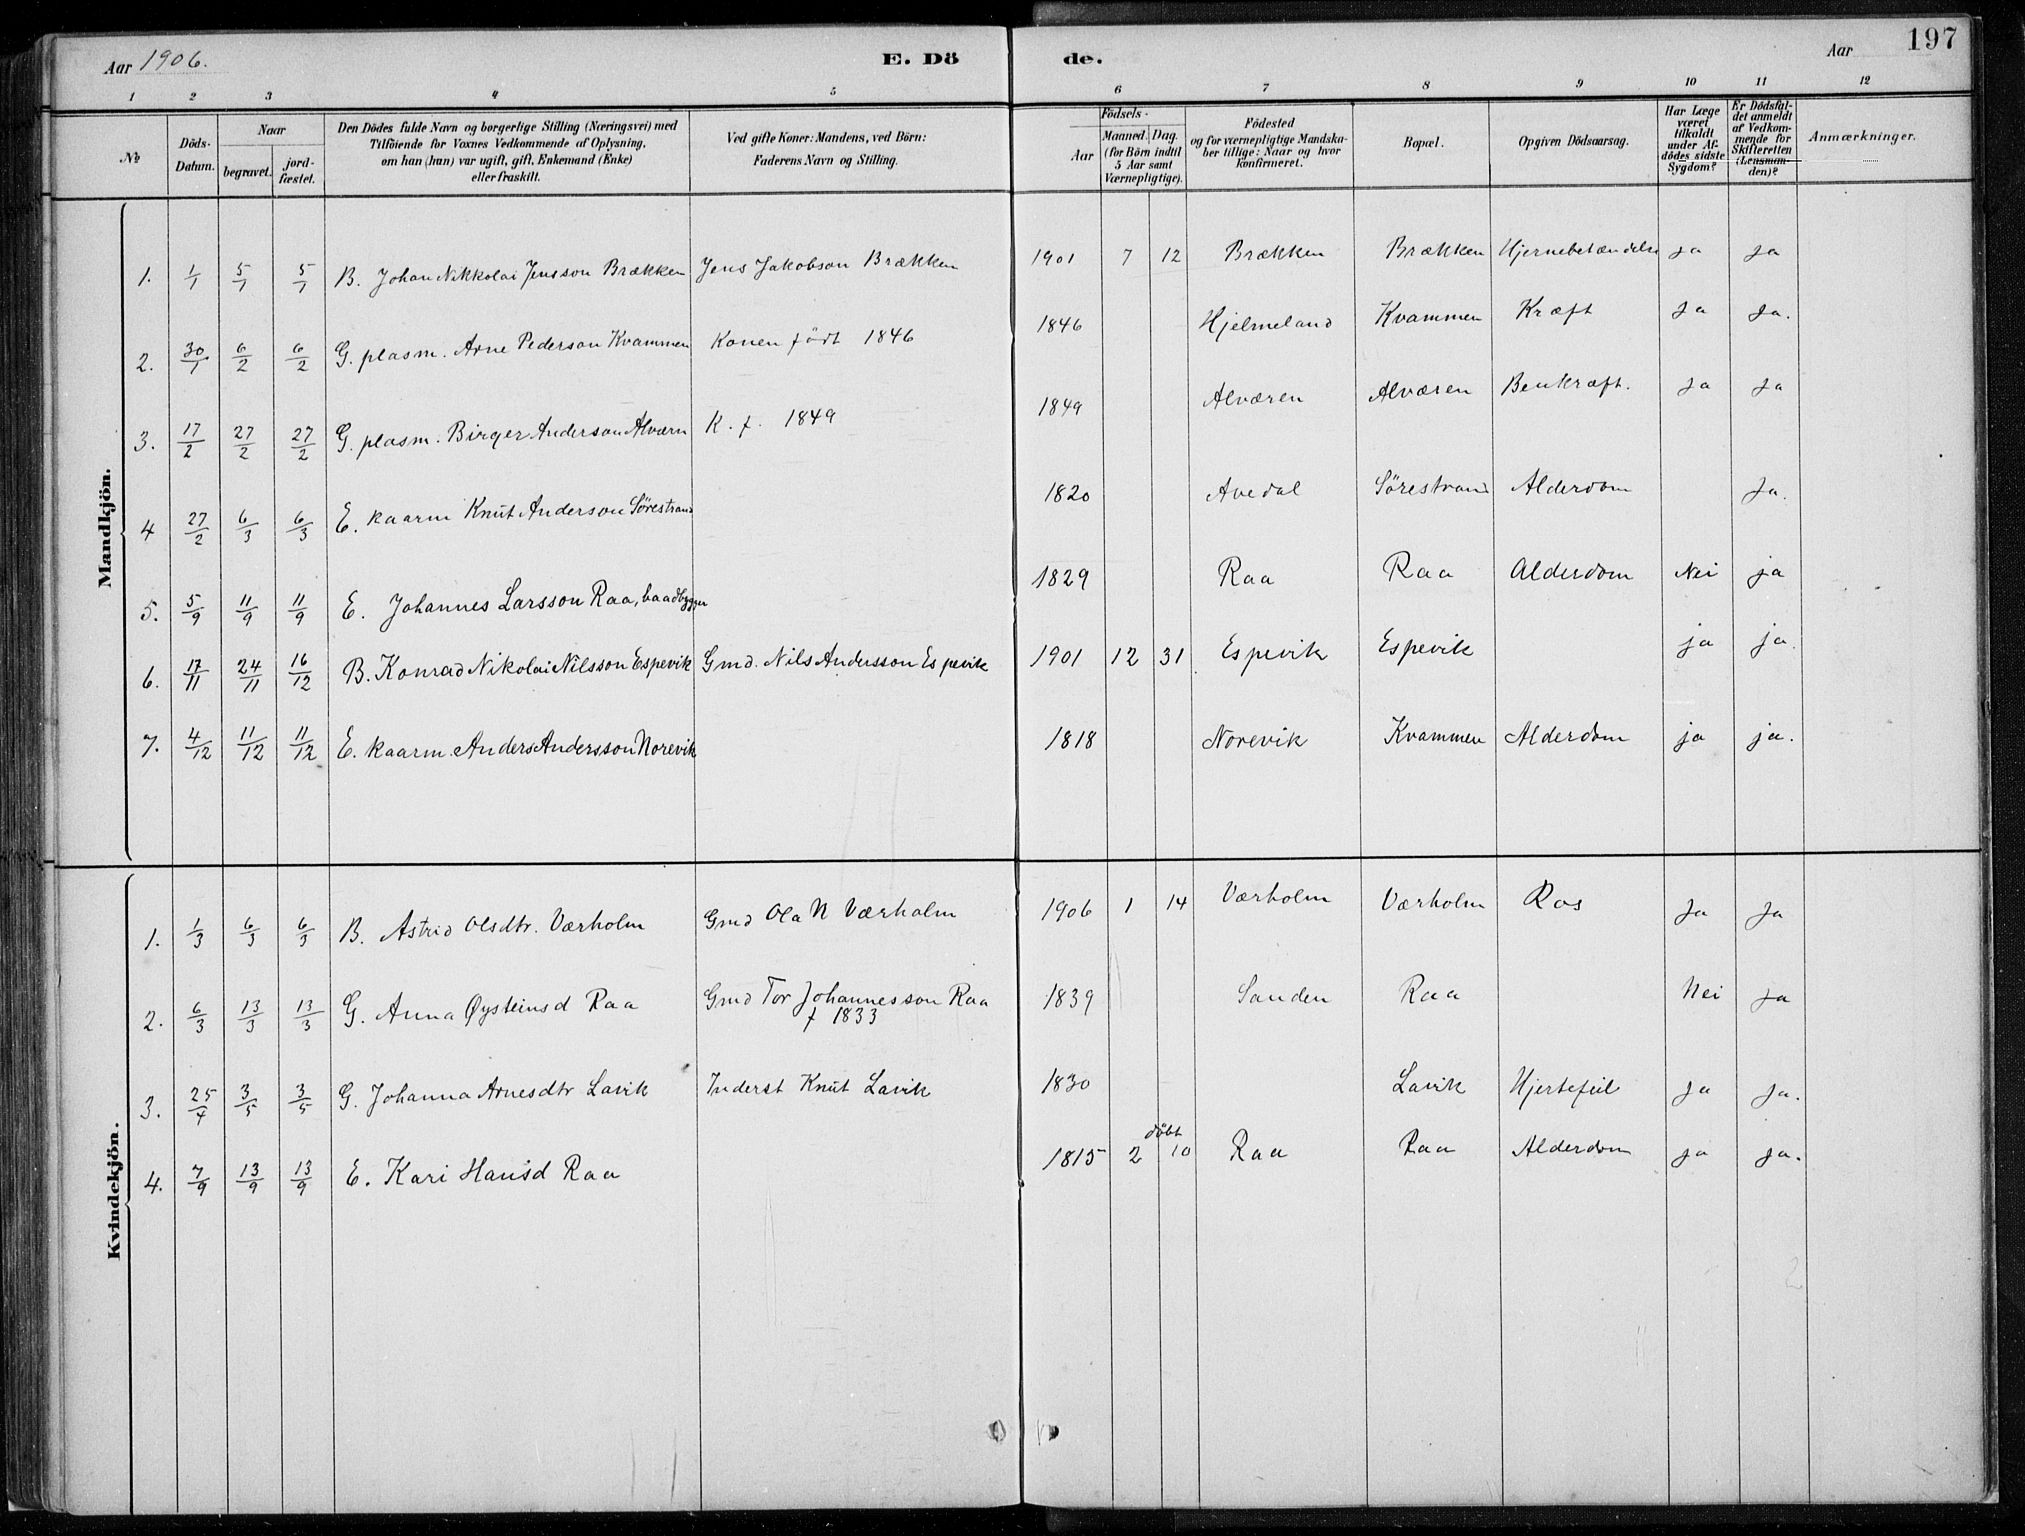 Aar 1906. E. Dö de. Aar 197
1 2 3 4 5 6 7 8 9 10 11 12
No
Döds-Datum.
Naar begravet. jordfæstet.
Den Dödes fulde Navn og borgerlige Stilling (Næringsvei) med Tilföiende for Voxnes Vedkommende af Oplysning, om han (hun) var ugift, gift, Enkemand (Enke) eller fraskilt.
Ved gifte Koner: Mandens, ved Börn: Faderens Navn og Stilling.
Födsels- Aar Maaned. Dag. (for Börn indtil 5 Aar samt Værnepligtige).
Födested og for værnepligtige Mandskaber tillige: Naar og hvor konfirmeret.
Bopæl.
Opgiven Dödsaarsag.
Har Læge været tilkaldt under Afdödes sidste Sygdom?
Er Dödsfaldet anmeldt af Vedkommende for Skifteretten (Lensmanden)?
Anmærkninger.
Mandkjön.
1. 1/1 5/1 5/1 B. Johan Nikkolai Jensson Brækken Jens Jakobson Brækken 1901 7 12 Brækken Brækken Hjernebetændelse Ja Ja
2. 30/1 6/2 6/2 G. plasm. Arne Pederson Kvammen Konen født 1846 1846 Hjelmeland Kvammen Kræft Ja Ja.
3. 17/2 27/2 27/2 G. plasm. Birger Anderson Alværn K. f. 1849 1849 Alværen Alværen Benkræft. Ja Ja
4 27/2 6/3 6/3 E. kaarm Knut Anderson Sørestrand 1820 Avedal Sørestrand Alderdom Ja.
5. 5/9 11/9 11/9 E. Johannes Larsson Raa, baadbygger 1829 Raa Raa Alderdom Nei ja
6. 17/11 24/11 16/12 B. Konrad Nikolai Nilsson Espevik Gmd. Nils Andersson Espevik 1901 12 31 Espevik Espevik ja ja.
7. 4/12 11/12 11/12 E. kaarm. Anders Andersson Norevik 1818 Norevik Kvammen Alderdom ja ja.
Kvindekjön.
1. 1/3 6/3 6/3 B. Astrid Olsdtr. Værholm Gmd Ola N Værholm 1906 1 14 Værholm Værholm Ros Ja Ja
2. 6/3 13/3 13/3 G. Anna Øysteinsd Raa Gmd Tor Johannesson Raa f 1833 1839 Sanden Raa Nei Ja
3. 25/4 3/5 3/5 G. Johanna Arnesdtr Lavik Inderst Knut Lavik 1830 Lavik Hjertefeil Ja Ja.
4. 7/9 13/9 13/9 E. Kari Hansd Raa 1815 2 døbt 10 Raa Raa Alderdom Ja Ja.